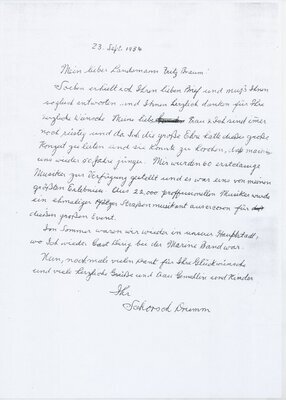 23. Sept. 1984
Mein lieber Landsmann Fritz Braun!
Soeben erhielt ich Ihren lieben Brief und muß Ihnen
sogleich antworten und Ihnen herzlich danken für Ihre
Wünsche. Meine liebe Frau und sind immer
noch rüstig und da ich die große Ehre hatte diese große
zu leiten und sie konnte zu
uns wieder Jahre jünger. Mir wurden 60 erstklassige
Musiker zur Verfügung gestellt und es war uns von
größten Erlebnissen. Aus 22,000 professionellen Musiker wurde
ein ehemaliger Pfälzer Straßenmusikant auserkoren für
diesen großen Event.
Im Sommer waren wir wieder in unserer Hauptstadt,
wo ich wieder Gast Dirig bei der Marine Band war.
Nun, nochmals vielen Dank für Ihre Glückwünsche
und viele herzliche Grüße und Ihre Familie und Kinder
Ihr
Schorsch Drumm